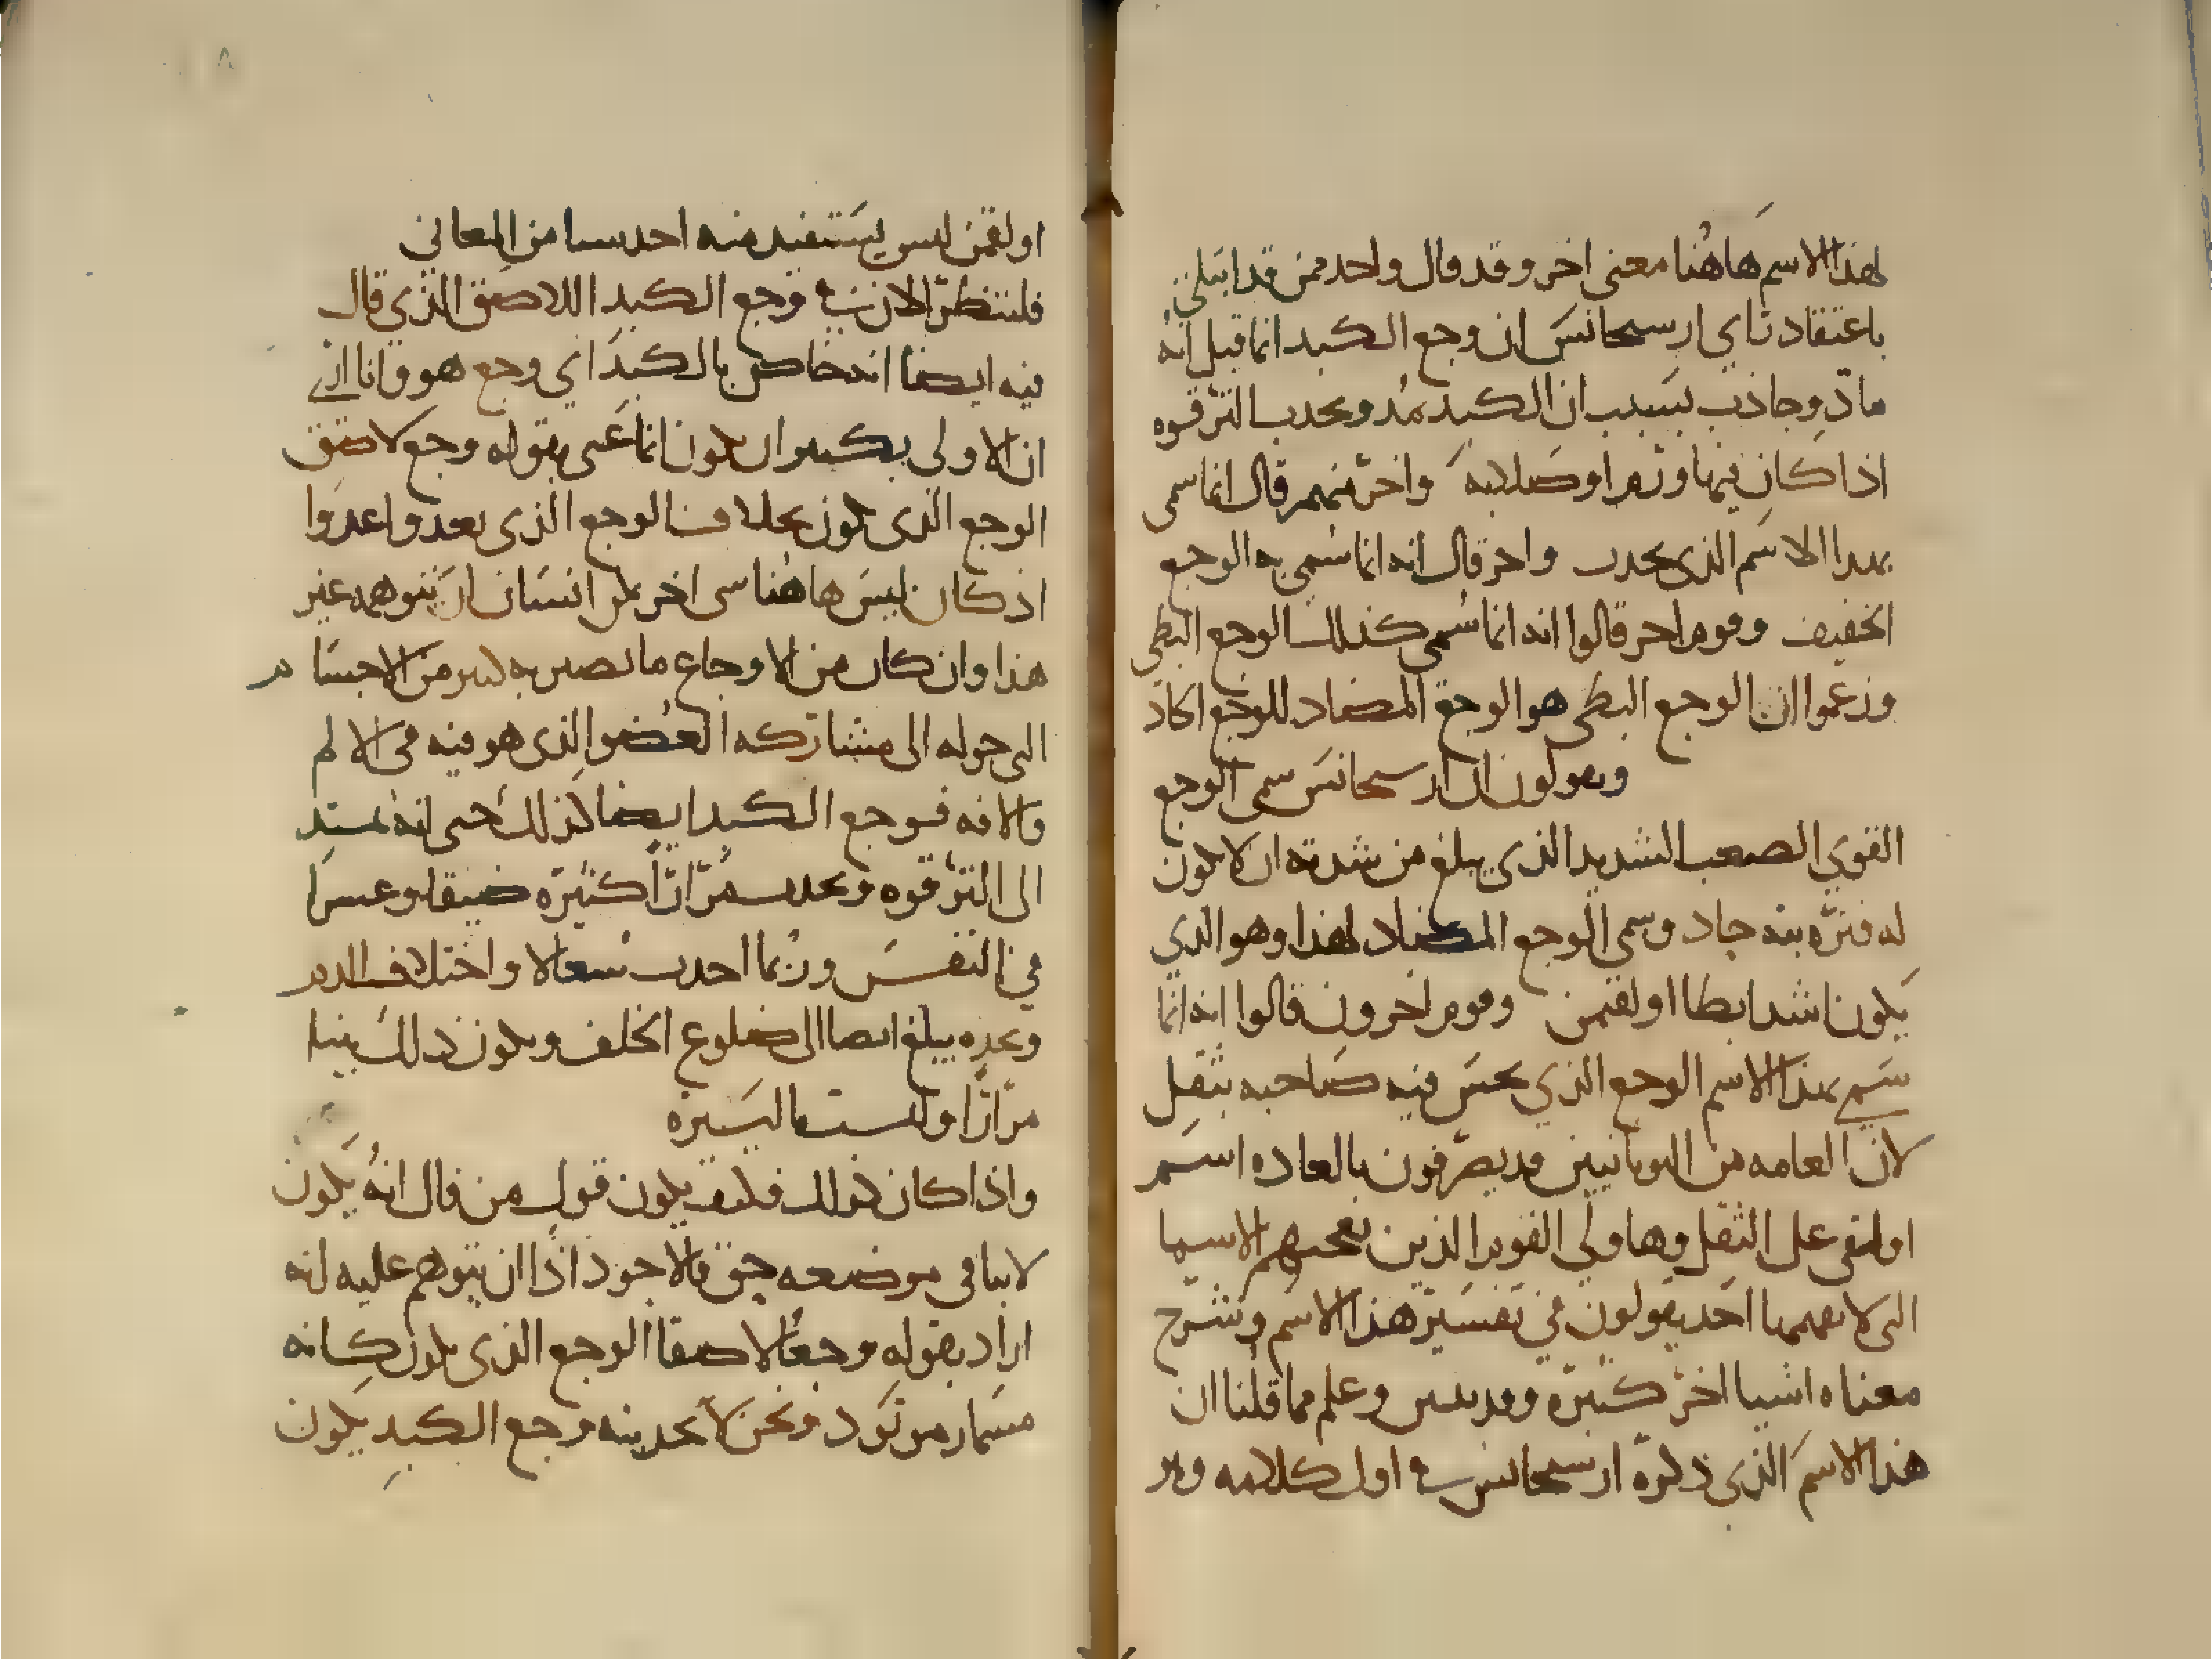 لهذا الاسم هاهُنا معنى اخر وقد قال واحد ممن قد ابتلى
باعتقاد راي ارسحانس ان وجع الكبد انما قيل انه
مادّ وجاذب بسبب ان الكبد تمد وتجذب الترقوه
اذا كان فيها ورم او صلابه واخر منهم قال انما سمى
بهذا الاسم الذي يجذب واخر قال انه انما سُمي به الوجع
الخفيف وقوم اخر قالوا انه انما سُمي كذلك الوجع البطي
وزعموا ان الوجع البطي هو الوجع المضاد للوجع الحاد
ويقولون ان ارسحانس سمى الوجع
القوي الصعب الشديد الذي يبلغ من شدته ان لا يكون
له فتره بته حاد وسمى الوجع المضاد لهذا وهو الذي
يكون اشد ابطا اولقمن وقوم اخرون قالوا انه انما
سمى بهذا الاسم الوجع الذي يحس فيه صاحبه بثقل
لان العامه من اليونانيين قد يصرفون بالعاده اسم
على الثقل وهاولي القوم الذين تعجبهم الاسما
التي لا يفهمها احد يقولون في تفسير هذا الاسم وشرح
معناه اشيا اخر كثيره وقد تبين وعلم مما قلنا ان
هذا الاسم الذي ذكره ارسحانس في اول كلامه وهو
اولقمن ليس يستفيد منه احد شيا من المعاني
فلننظر الان في وجع الكبد اللاصق الذي قال
فيه ايضا انه خاص بالكبد اي وجع هو وانا ارى
ان الاولى بكثير ان يكون انما عنى بقوله وجع لاصق
الوجع الذي يكون بخلاف الوجع الذي يعدوا عدوا
اذ كان ليس هاهُنا شي اخر يمكن انسان ان يتوهمه غير
هذا وان كان من الاوجاع ما يصير به كثير من الاجسام
التي حوله الى مشاركه العضو الذي هو فيه في الالم
والافه فوجع الكبد ايضا كذلك حتى انه يمتد
الى الترقوه ويحدث مرارًا كثيره ضيقا وعسرا
في التنفس وربما احدث سعالا واختلاف الدم
وتجده يبلغ ايضا الى ضلوع الخلف ويكون ذلك بينا
مرارًا وليست باليسيره
واذا كان كذلك فكيف يكون قول من قال انه يكون
لابثا في موضعه حق فالاجود اذًا ان يتوهم عليه انه
اراد بقوله وجعًا لاصقا الوجع الذي يكون كانه
مسمار مركود ونحن لا نجد بته وجع الكبد يكون